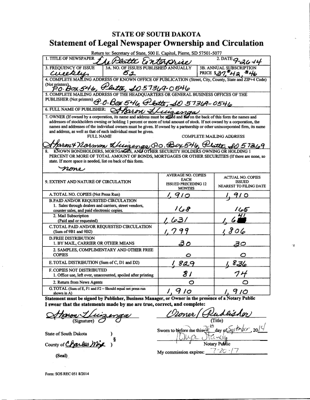 STATE OF SOUTH DAKOTA
Statement of Legal Newspaper Ownership and Circulation
Return to: Secretary of State, 500 E. Capitol, Pierre, SD 57501-5077
1. TITLE OF NEWSPAPER The Platte Enterprise 2. DATE 9-26-14
3. FREQUENCY OF ISSUE weekly 3A. NO. OF ISSUES PUBLISHED ANNUALLY 52 3B. ANNUAL SUBSCRIPTION PRICE
4. COMPLETE MAILING ADDRESS OF KNOWN OFFICE OF PUBLICATION (Street, City, County, State and ZIP+4 Code)
(Not printers) PO Box 546, Platte, SD 57369-0546
5. COMPLETE MAILING ADDRESS OF THE HEADQUARTERS OR GENERAL BUSINESS OFFICES OF THE
PUBLISHER (Not printers) P.O. Box 546, Platte, SD 57369-0546
6. FULL NAME OF PUBLISHER: Sharon Huizenga
7. OWNER (If owned by a corporation, its name and address must be stated and also on the back of this form the names and
addresses of stockholders owning or holding 1 percent or more of total amount of stock. If not owned by a corporation, the
names and addresses of the individual owners must be given. If owned by a partnership or other unincorporated firm, its name
and address, as well as that of each individual must be given.
FULL NAME COMPLETE MAILING ADDRESS
Sharon Huizenga, P.O. Box 546, Platte, SD 57369
8. KNOWN BONDHOLDERS, MORTGAGEES, AND OTHER SECURITY HOLDERS OWNING OR HOLDING 1
PERCENT OR MORE OF TOTAL AMOUNT OF BONDS, MORTGAGES OR OTHER SECURITIES (If there are none, so
state. If more space is needed, list on back of this form.
none
9. EXTENT AND NATURE OF CIRCULATION AVERAGE NO. COPIES EACH ISSUED PRECEDING 12 MONTHS ACTUAL NO. COPIES ISSUED NEAREST TO FILING DATE
A. TOTAL NO. COPIES (Net Press Run) 1,910 1,910
B. PAID AND/OR REQUESTED CIRCULATION
1. Sales through dealers and carriers, street vendors,
counter sales, and paid electronic copies. 168 165
2. Mail Subscriptions
(Paid and or requested) 1,631 1,641
C. TOTAL PAID AND/OR REQUESTED CIRCULATION
(Sum of 9B1 and 9B2) 1,799 1,806
D. FREE DISTRIBUTION
1. BY MAIL, CARRIER OR OTHER MEANS 30 30
2. SAMPLES, COMPLIMENTARY AND OTHER FREE
COPIES 0 0
E. TOTAL DISTRIBUTION (Sum of C, D1 and D2) 1,829 1,836
F. COPIES NOT DISTRIBUTED
1. Office use, left over, unaccounted, spoiled after printing 81 74
2. Return from News Agents 0 0
G. TOTAL (Sum of E, F1 and F2 - Should equal net press run
shown in A) 1,910 1,910
Statement must be signed by Publisher, Business Manager, or Owner in the presence of a Notary Public
I swear that the statements made by me are true, correct, and complete:
Sharon Huizenga Owner/Publisher
(Signature) (Title)
State of South Dakota ) Sworn to before me this day of September, 2014
County of Charles Mix ) §
Notary Public
(Seal) My commission expires:
Form: SOS REC 051 8/2014